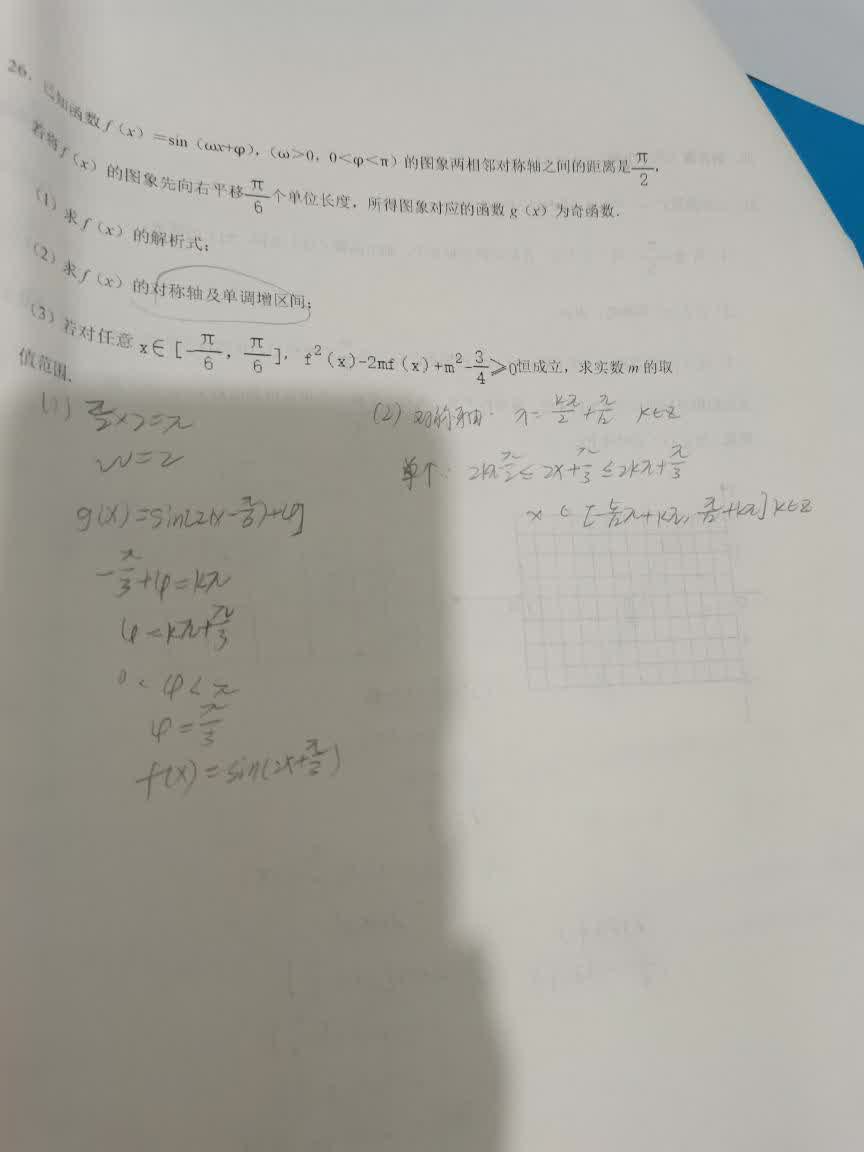 26. 已知函数f(x)=sin(ωx+φ),(ω>0,0<φ<π)的图象两相邻对称轴之间的距离是π/2,
若将f(x)的图象先向右平移π/6个单位长度,所得图象对应的函数g(x)为奇函数.
(1)求f(x)的解析式;
(2)求f(x)的对称轴及单调增区间;
(3)若对任意x∈[-π/6,π/6],f²(x)-2mf(x)+m²-3/4≥0恒成立,求实数m的取
值范围.
(1) π/2×2=π
w=2
g(x)=sin[2(x-π/6)+φ]
-π/3+φ=kπ
φ=kπ+π/3
0<φ<π
φ=π/3
f(x)=sin(2x+π/3)
(2)对称轴: x=kπ/2+π/12 k∈Z
2kπ-π/2≤2x+π/3≤2kπ+π/3
x∈[-5/12π+kπ,π/12+kπ]k∈Z